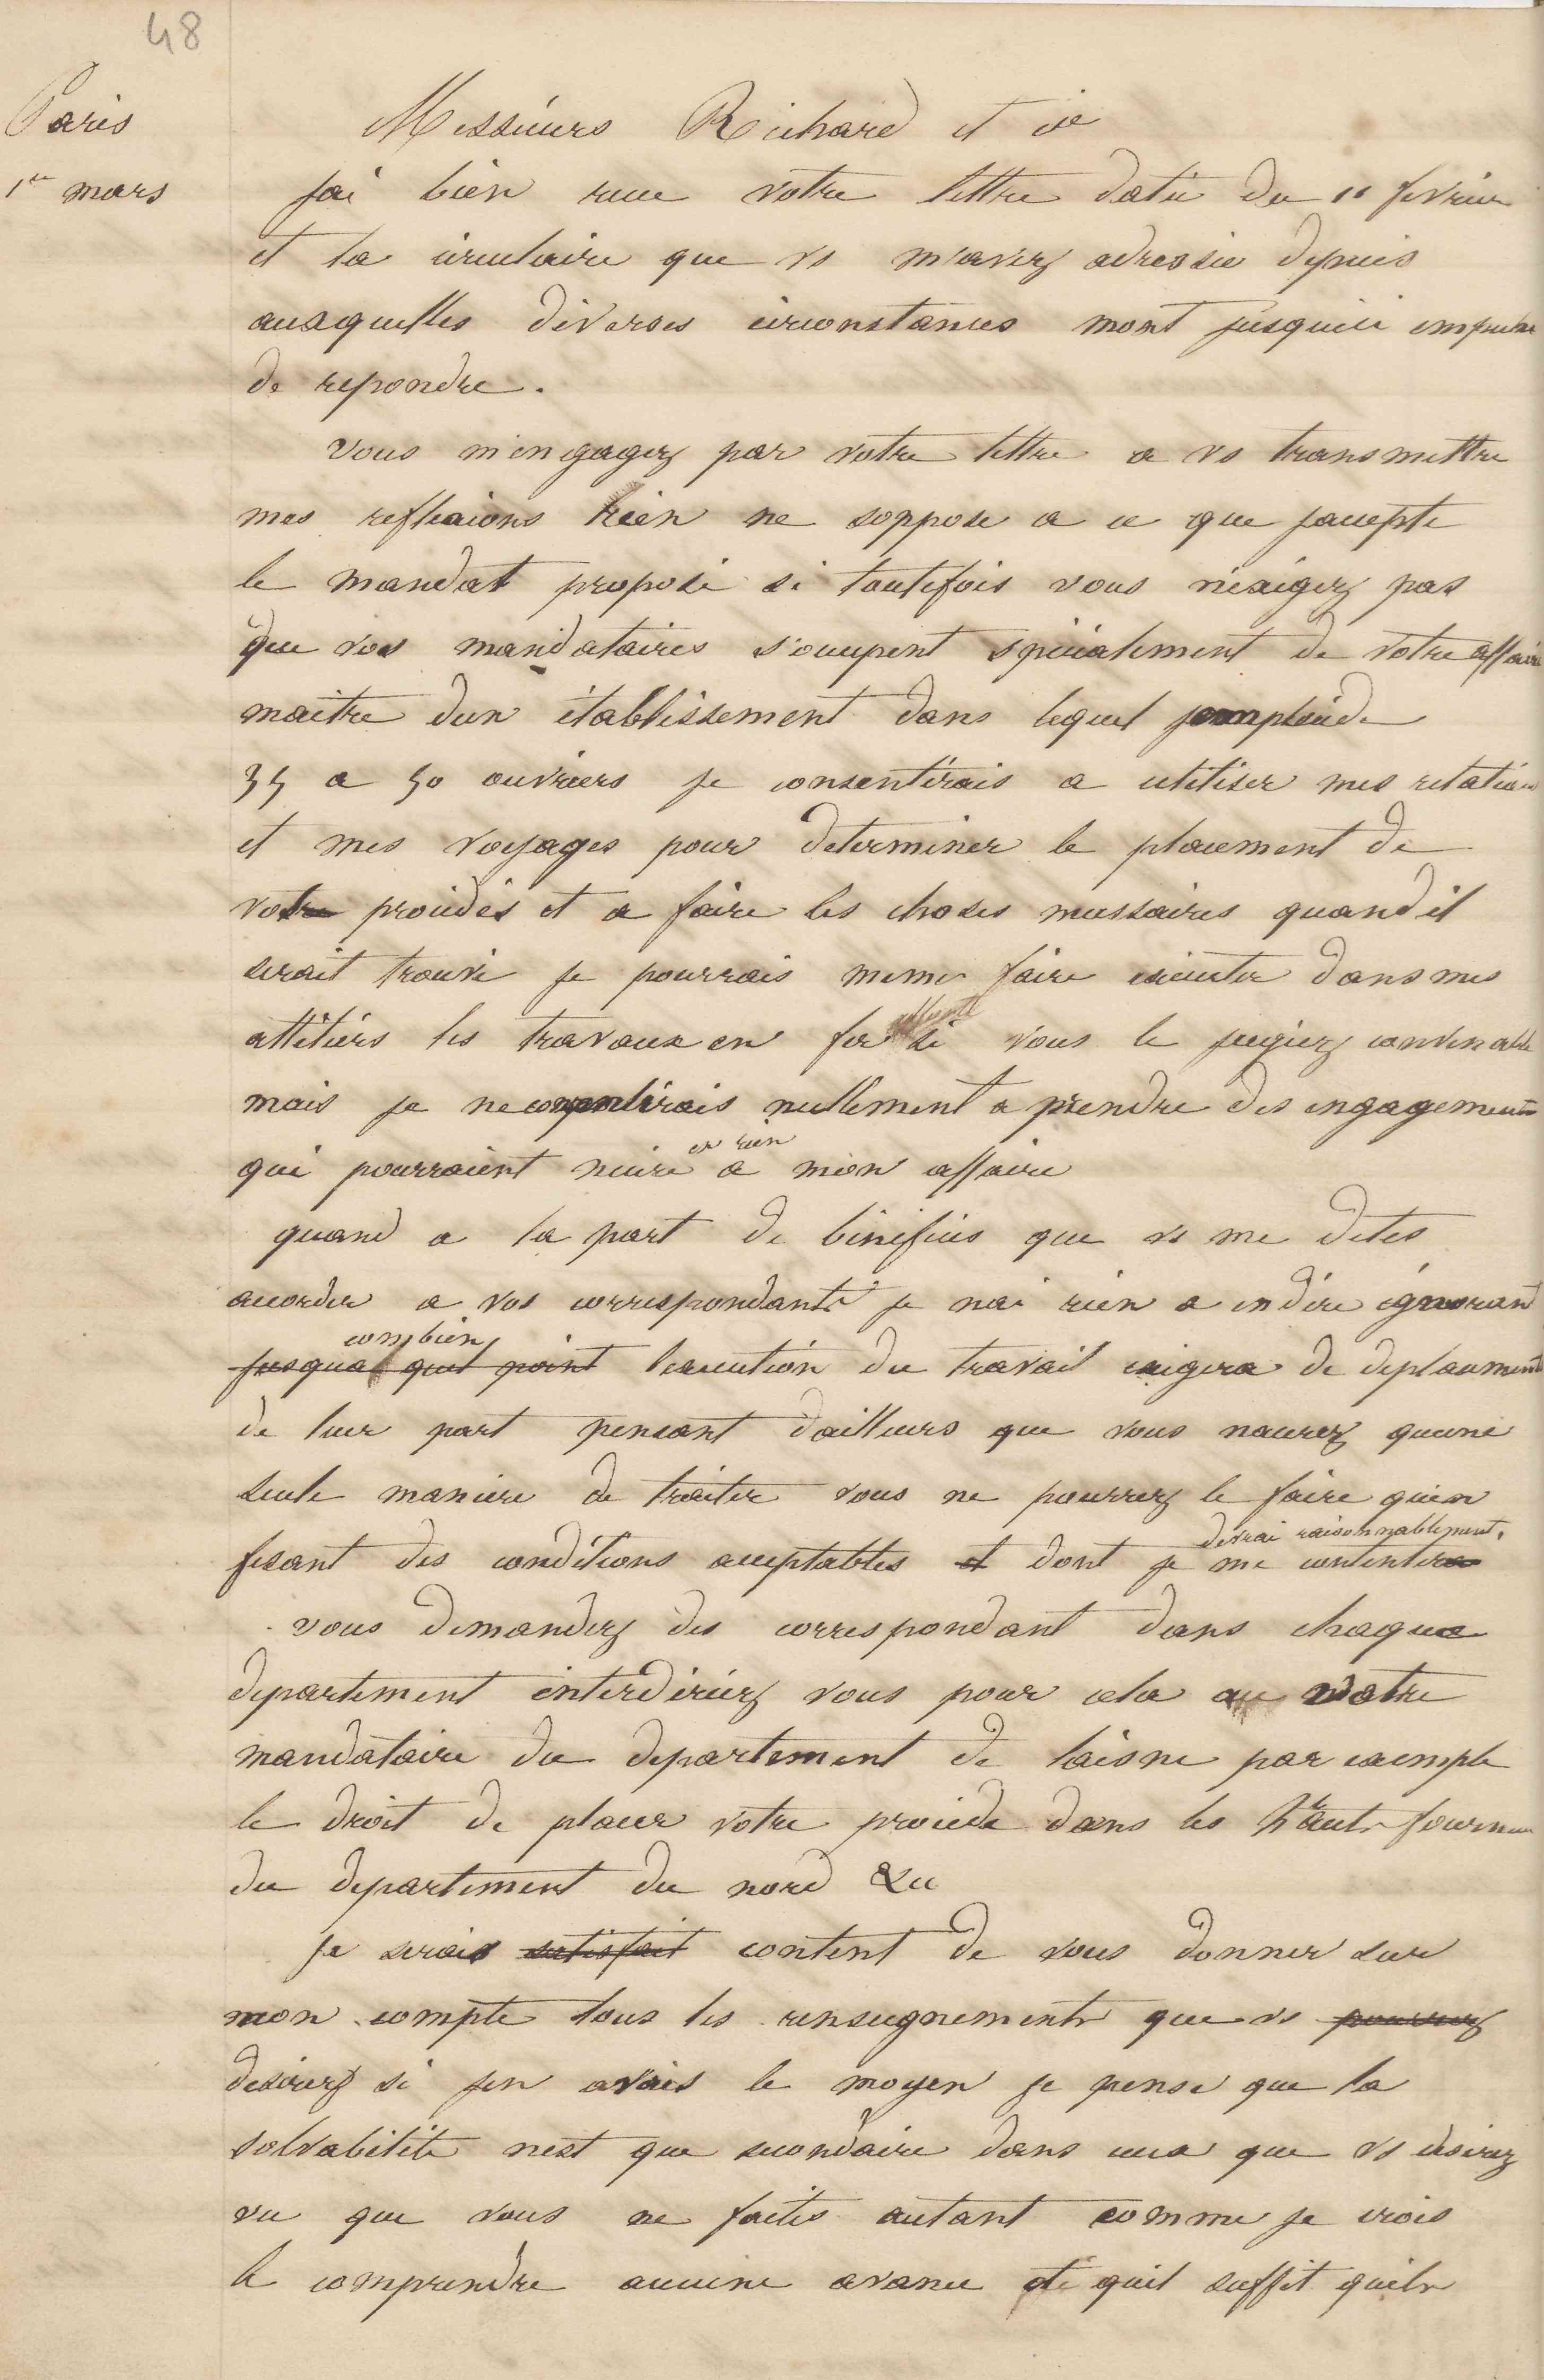 48
Paris
1er mars
Messieurs Richard et cie
jai bien recue votre lettre datée du 11 fevrier
et la circulaire que vs m'avez adressée depuis
auxquelles diverses circonstances mont jusquici empeché
de repondre.
vous m'engagez par votre lettre a vs transmettre
mes reflexions rien ne soppose a ce que jaccepte
le mandat proposé si toutefois vous n'exigez pas
que vos mandataires s'occupent spécialement de votre affaire
maitre dun établissement dans lequel
35 a 50 ouvriers je consentirais a utiliser mes relations
et mes voyages pour determiner le placement de
vos procédés et a faire les choses necessaires quand il
serait trouvé je pourrais meme faire executer dans mes
attéliers les travaux en fer si vous le jugiez convenable
mais je ne consentirais nullement a prendre des engagements
qui pourraient nuire en rien a mon affaire
quand a la part de bénéfices que vs me dites
accorder a vos correspondants je nai rien a en dire ignorant
combien
jusqua quel point lexecution du travail exigera de deplacement
de leur part pensant dailleurs que vous naurez quune
seule maniere de traiter vous ne pourrez le faire quen
devrai raisonnablement
fesant des conditions acceptables et dont je me contenter
vous demandez des correspondant dans chaque
departement interdiriez vous pour cela au votre
mandataire du departement de laisne par exemple
le droit de placer votre procédé dans les hauts fourneaux
du departement du nord &cc
je serais satisfait content de vous donner sur
mon compte tous les renseignements que vs pourriez
desirez si jen avais le moyen je pense que la
solvabilité nest que secondaire dans ceux que vs desirez
vu que vous ne faites autant comme je crois
le comprendre aucune avance et quil suffit quils